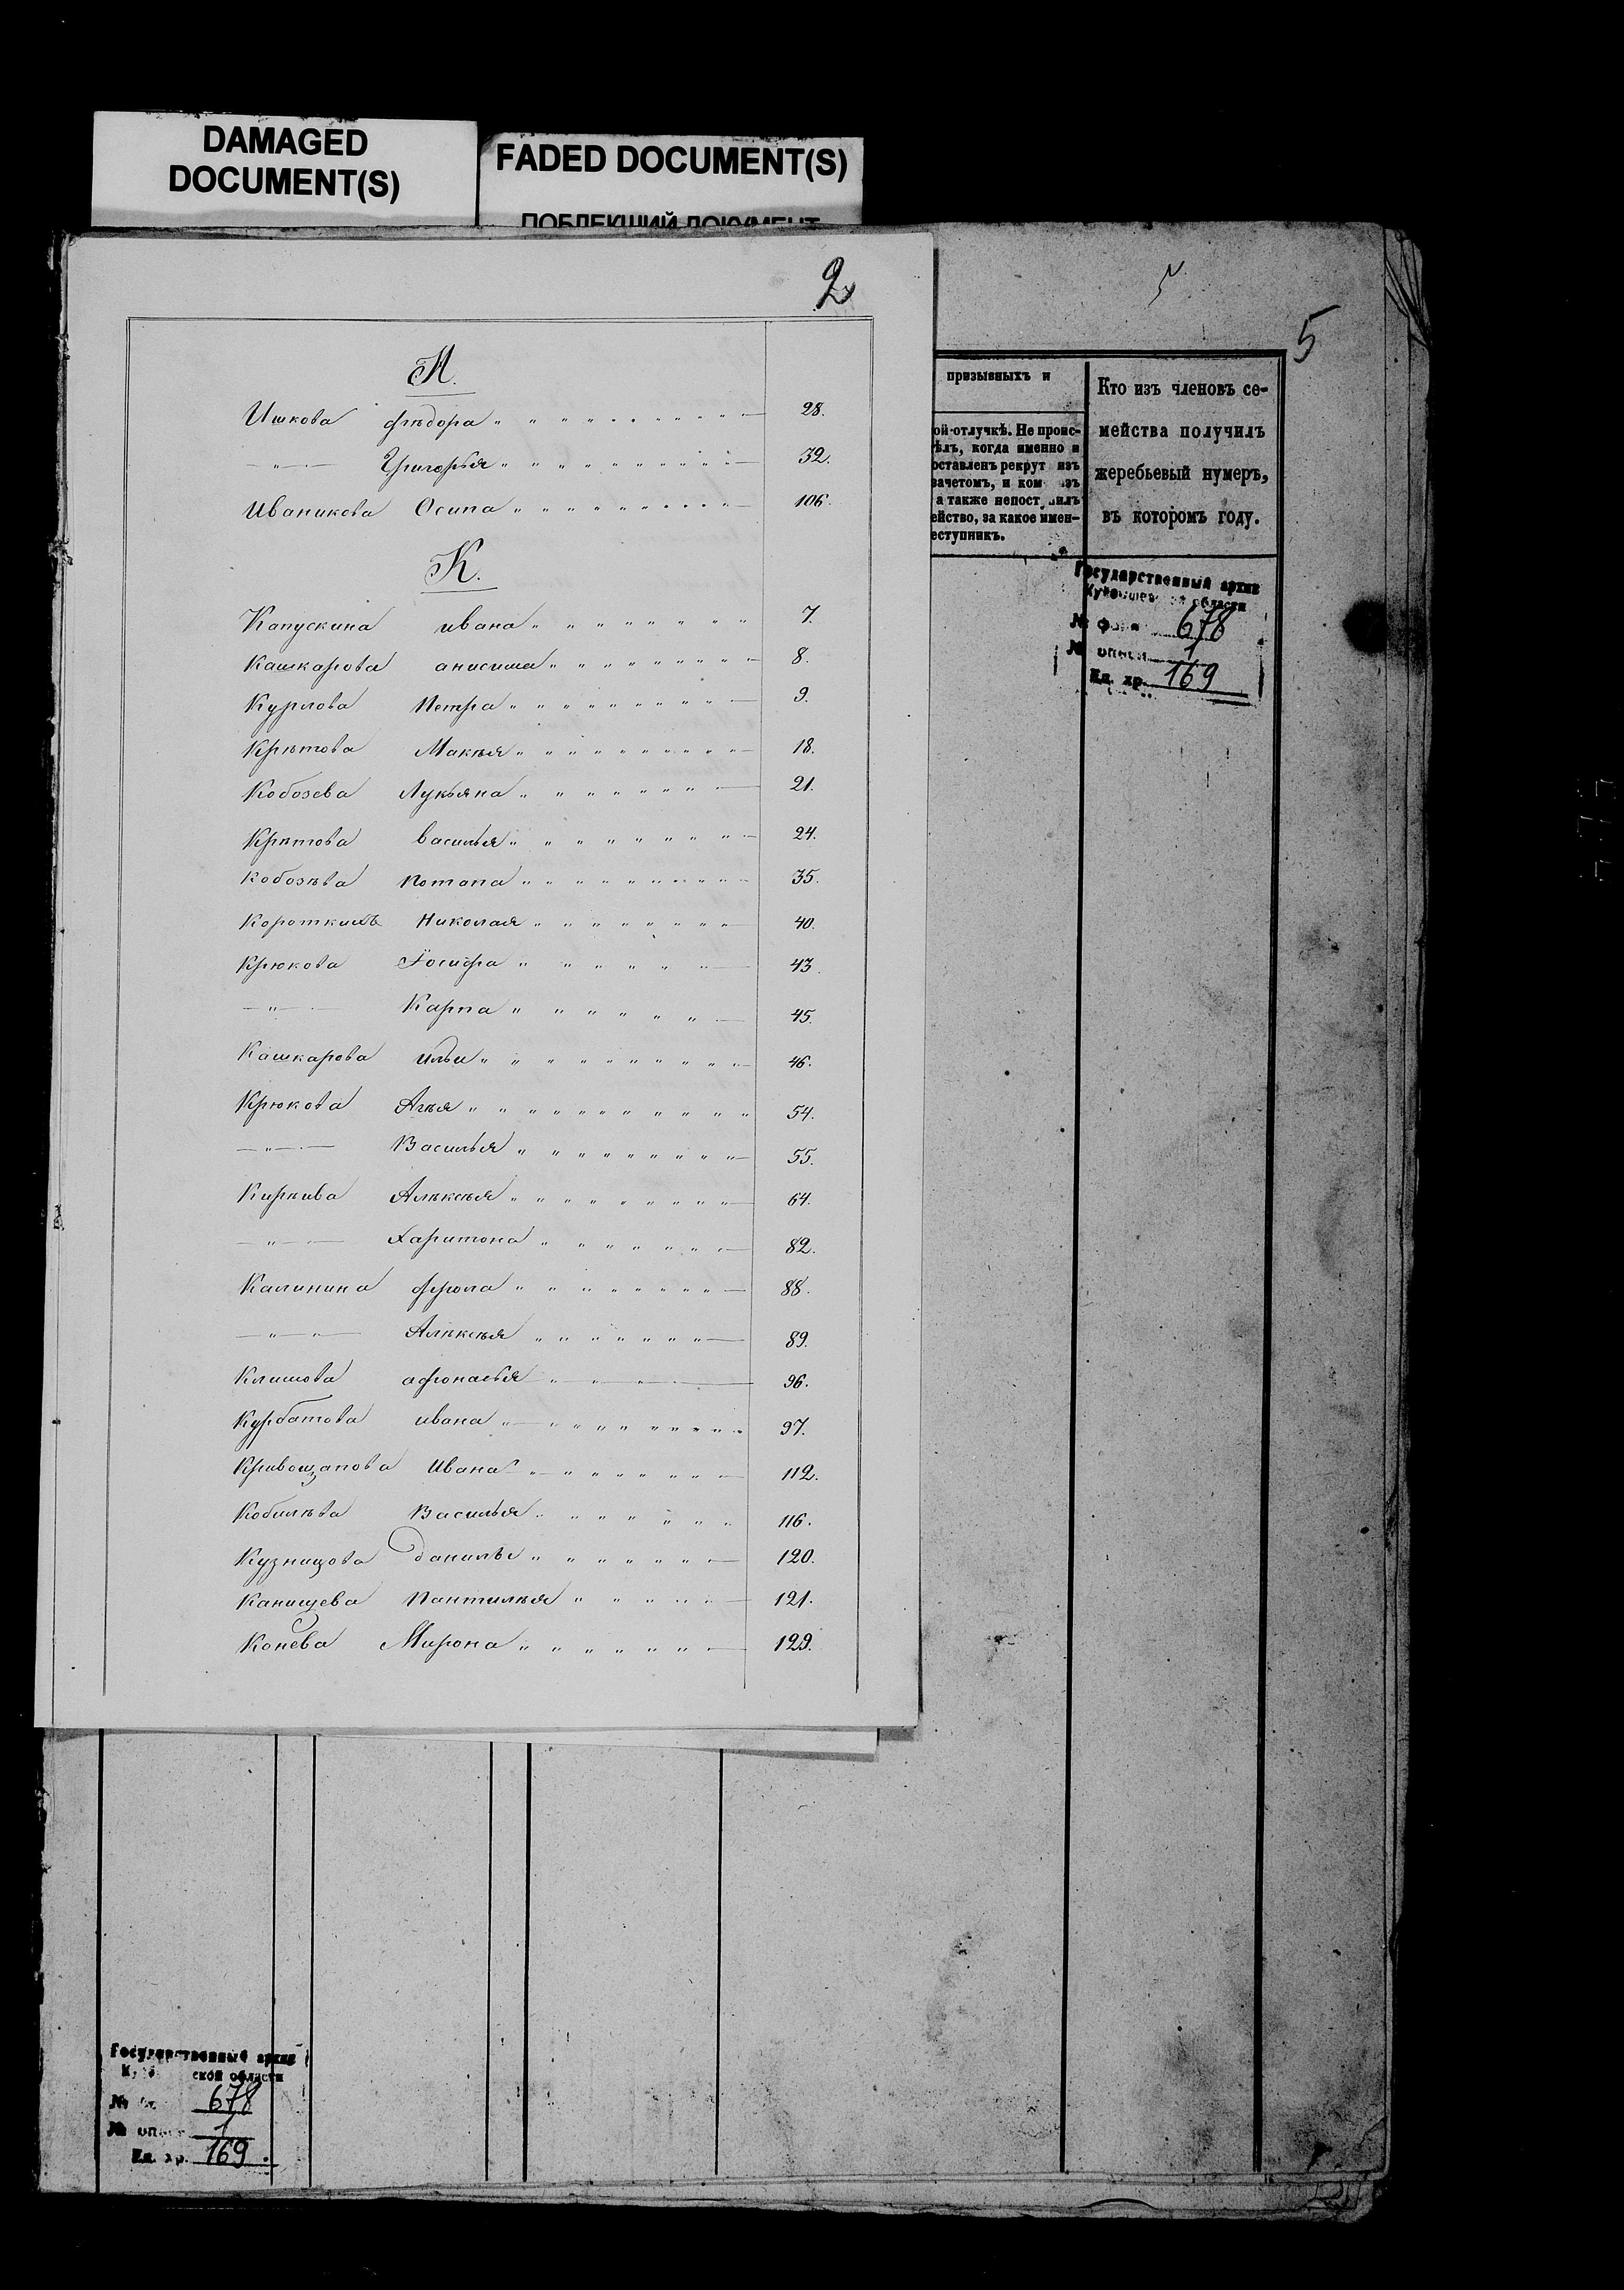 DAMAGED
DOCUMENT(S)
FADED DOCUMENT(S)
ПОБЛЕКШИЙ ДОКУМЕНТ
2
И.
Ишкова фѣдора " " " " " " " " " — 28.
— " — Григорья " " " " " " " " " — 32.
Иваникова Осипа " " " " " " " " " — 106.
К.
Капускина ивана " " " " " " " " 7.
Кашкарова анисима " " " " " " " " — 8.
Курлова Петра " " " " " " " " " — 9.
Крѣтова Макѣя " " " " " " " " " — 18.
Кобозева Лукьяна " " " " " " " — 21.
Крѣтова василья " " " " " " " " — 24.
Кобозѣва потапа " " " " " " " " — 35.
Короткихъ Николая " " " " " " " — 40.
Крюкова Іосифа " " " " " " — 43.
— " — Карпа " " " " " " — 45.
Кашкарова ильи " " " " " " " " " — 46.
Крюкова Агѣя " " " " " " " " " " 54.
— " — Василья " " " " " " " " — 55.
Кирѣива Алѣксѣя " " " " " " " " " — 64.
— " — Харитона " " " " " " " — 82.
Калинина фрола " " " " " " " " — 88.
— " — " — Алѣксѣя " " " " " " " — 89.
Климова афонасья " " " — 96.
Курбатова ивана " — " " " " " " " " 97.
Кривощапова Ивана " — " " " " " " — 112.
Кобилѣва Василья " " " " " " " 116.
Кузницова данилы " " " " " " — 120.
Канищева Пантилѣя " " " " " — 121.
Конева Мирона " " " " " " — 129.
5
5
призывныхъ и
ой-отлучкѣ. Не проис-
ѣлъ, когда именно и
оставленъ рекрут изъ
зачетомъ, и ком изъ
а также непост вилъ
ейство, за какое имен-
еступникъ.
Кто изъ членовъ се-
мейства получилъ
жеребьевый нумеръ,
въ которомъ году.
Государственный архив
области
№ фон 678
№ описи 1
Ед. хр. 169
Государственный архив
ской области
№ 678
№ опис 1
Ед. хр. 169